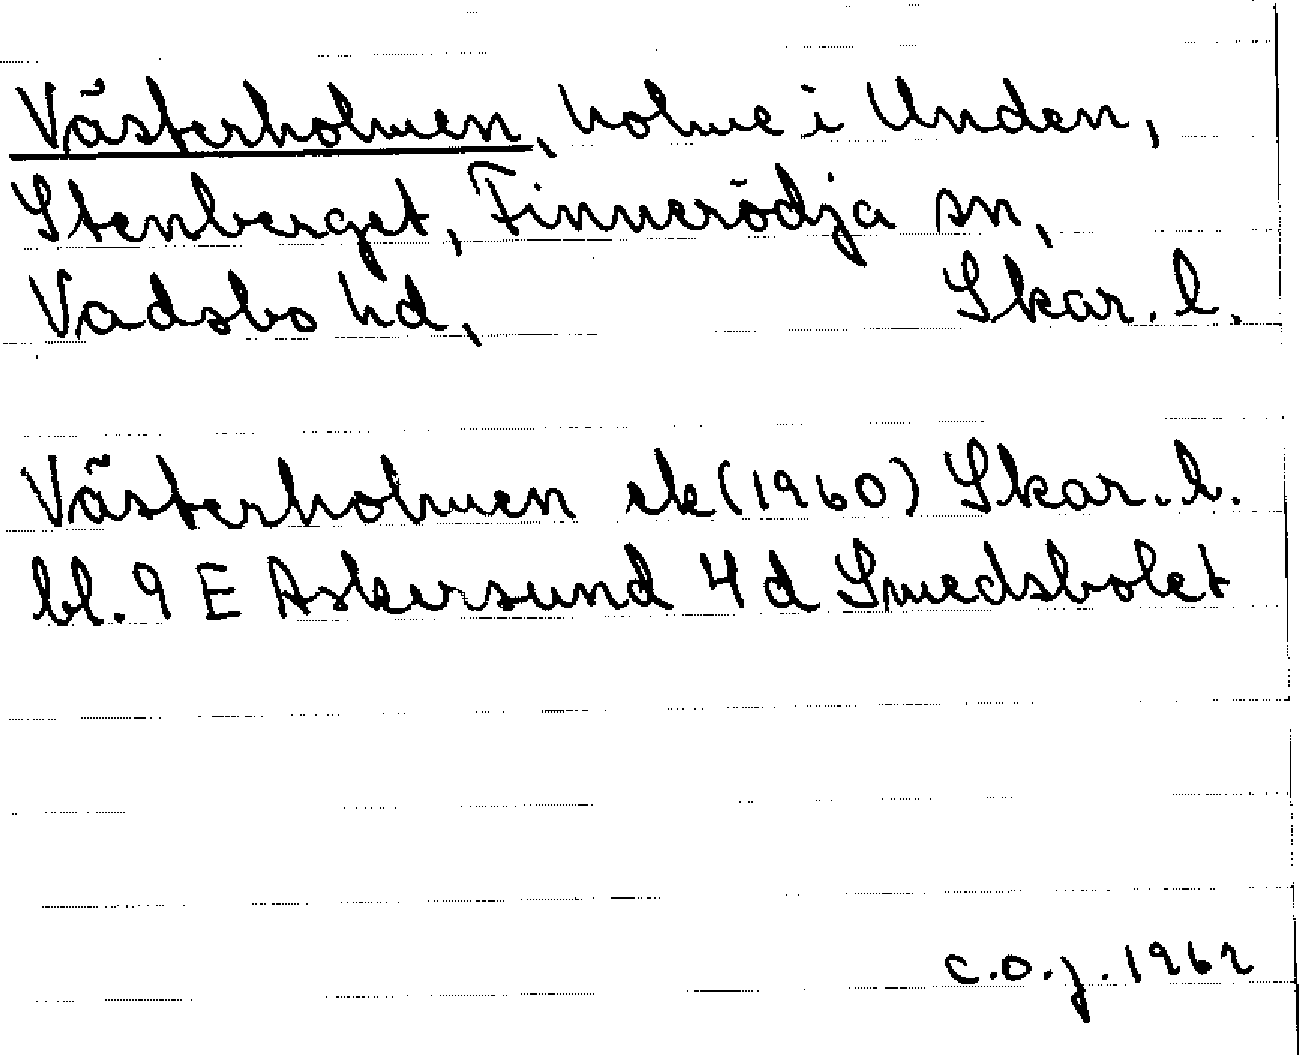 Västerholmen, holme i Unden,
Stenberget, Finnerödja sn,
Vadsbo hd, Skar. l.
Västerholmen ek (1960) Skar. l.
bl. 9 E Askersund 4 d Smedsbolet
C.O.J. 1962